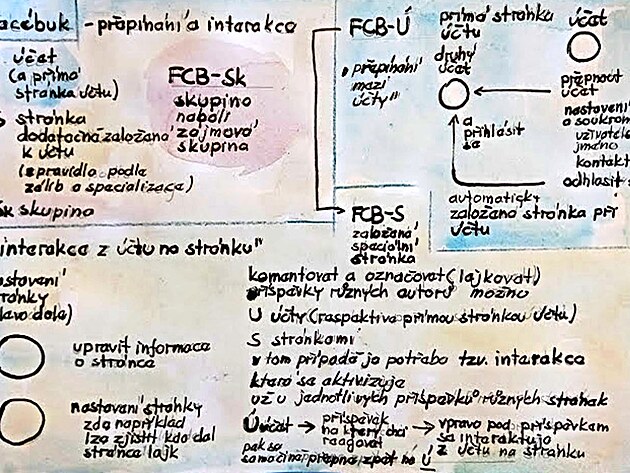 acebuk - přepínání a interakce
účet
(a přímá
stránka účtu)
S stránka
dodatečně založená
k účtu
(zpravidla podle
zálib a specializace)
Sk skupina
FCB-Sk
skupina
neboli
zájmová
skupina
FCB-Ú
„přepínání
mezi
účty"
přímá stránka
účtu
druhý
účet
a
přihlásit
se
účet
přepnout
účet
nastavení
a soukrom
uživatels
jméno
kontakt
odhlásit s
automaticky
založená stránka při
účtu
FCB-S
založená
speciální
stránka
interakce z účtu na stránku"
astavení
ránky
lavo dole)
upravit informace
o stránce
nastavení stránky
zde například
lze zjistit kdo dal
stránce lajk
komentovat a označovat (lajkovat)
příspěvky různých autorů možno
Ú účty (respektive přímou stránkou účtu)
S stránkami
v tom případě je potřeba tzv. interakce
která se aktivizuje
už u jednotlivých příspěvků různých stránek
Ú účet → příspěvek → vpravo pod příspěvkem
na který chci
reagovat
se interaktuje
z účtu na stránku
pak se
samočinně přepne zpět na Ú